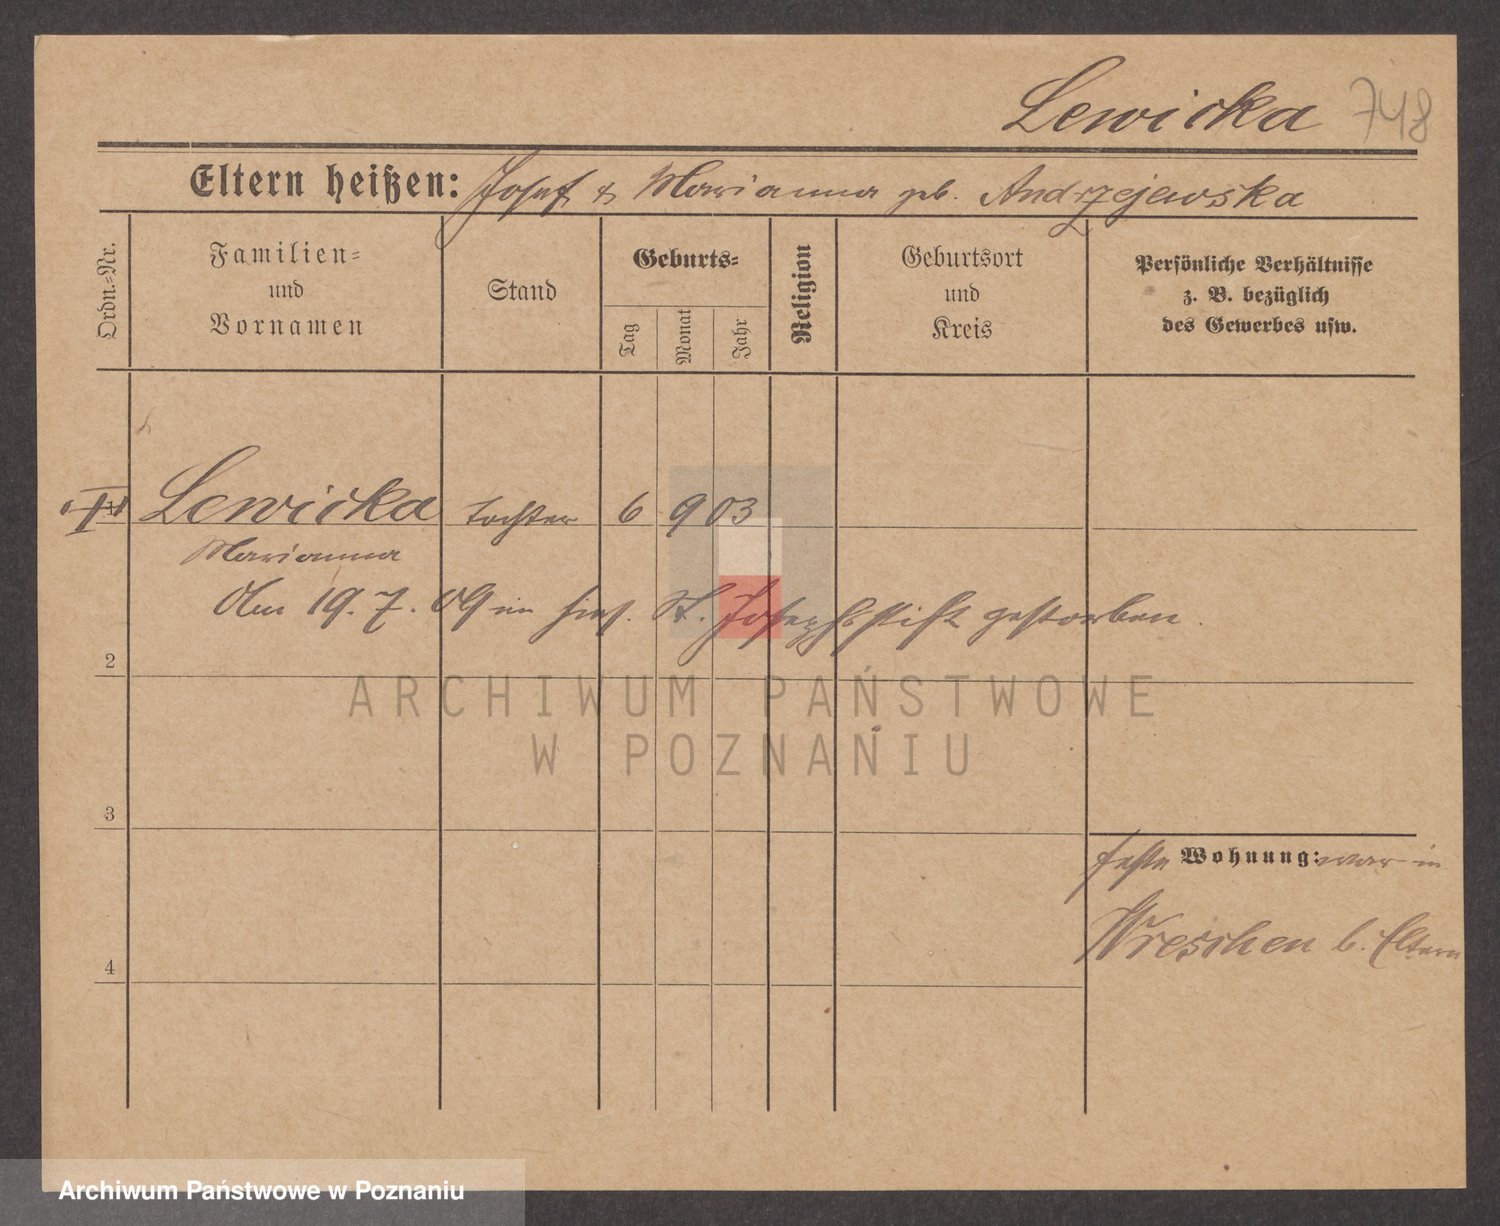 Lewicka 748
Eltern heißen: Josef & Marianna geb. Andrzejewska
Ordn.-Nr.
Familien-
und
Vornamen
Stand
Geburts-
Tag
Monat
Jahr
Religion
Geburtsort
und
Kreis
Persönliche Verhältnisse
z. B. bezüglich
des Gewerbes usw.
Lewicka Tochter 6 9 03
Marianna
Am 19. 7. 09 im hies. St. Josephsstift gestorben.
2
ARCHIWUM PAŃSTWOWE
W POZNANIU
3
feste Wohnung: war in
Wreschen b. Eltern
4
Archiwum Państwowe w Poznaniu